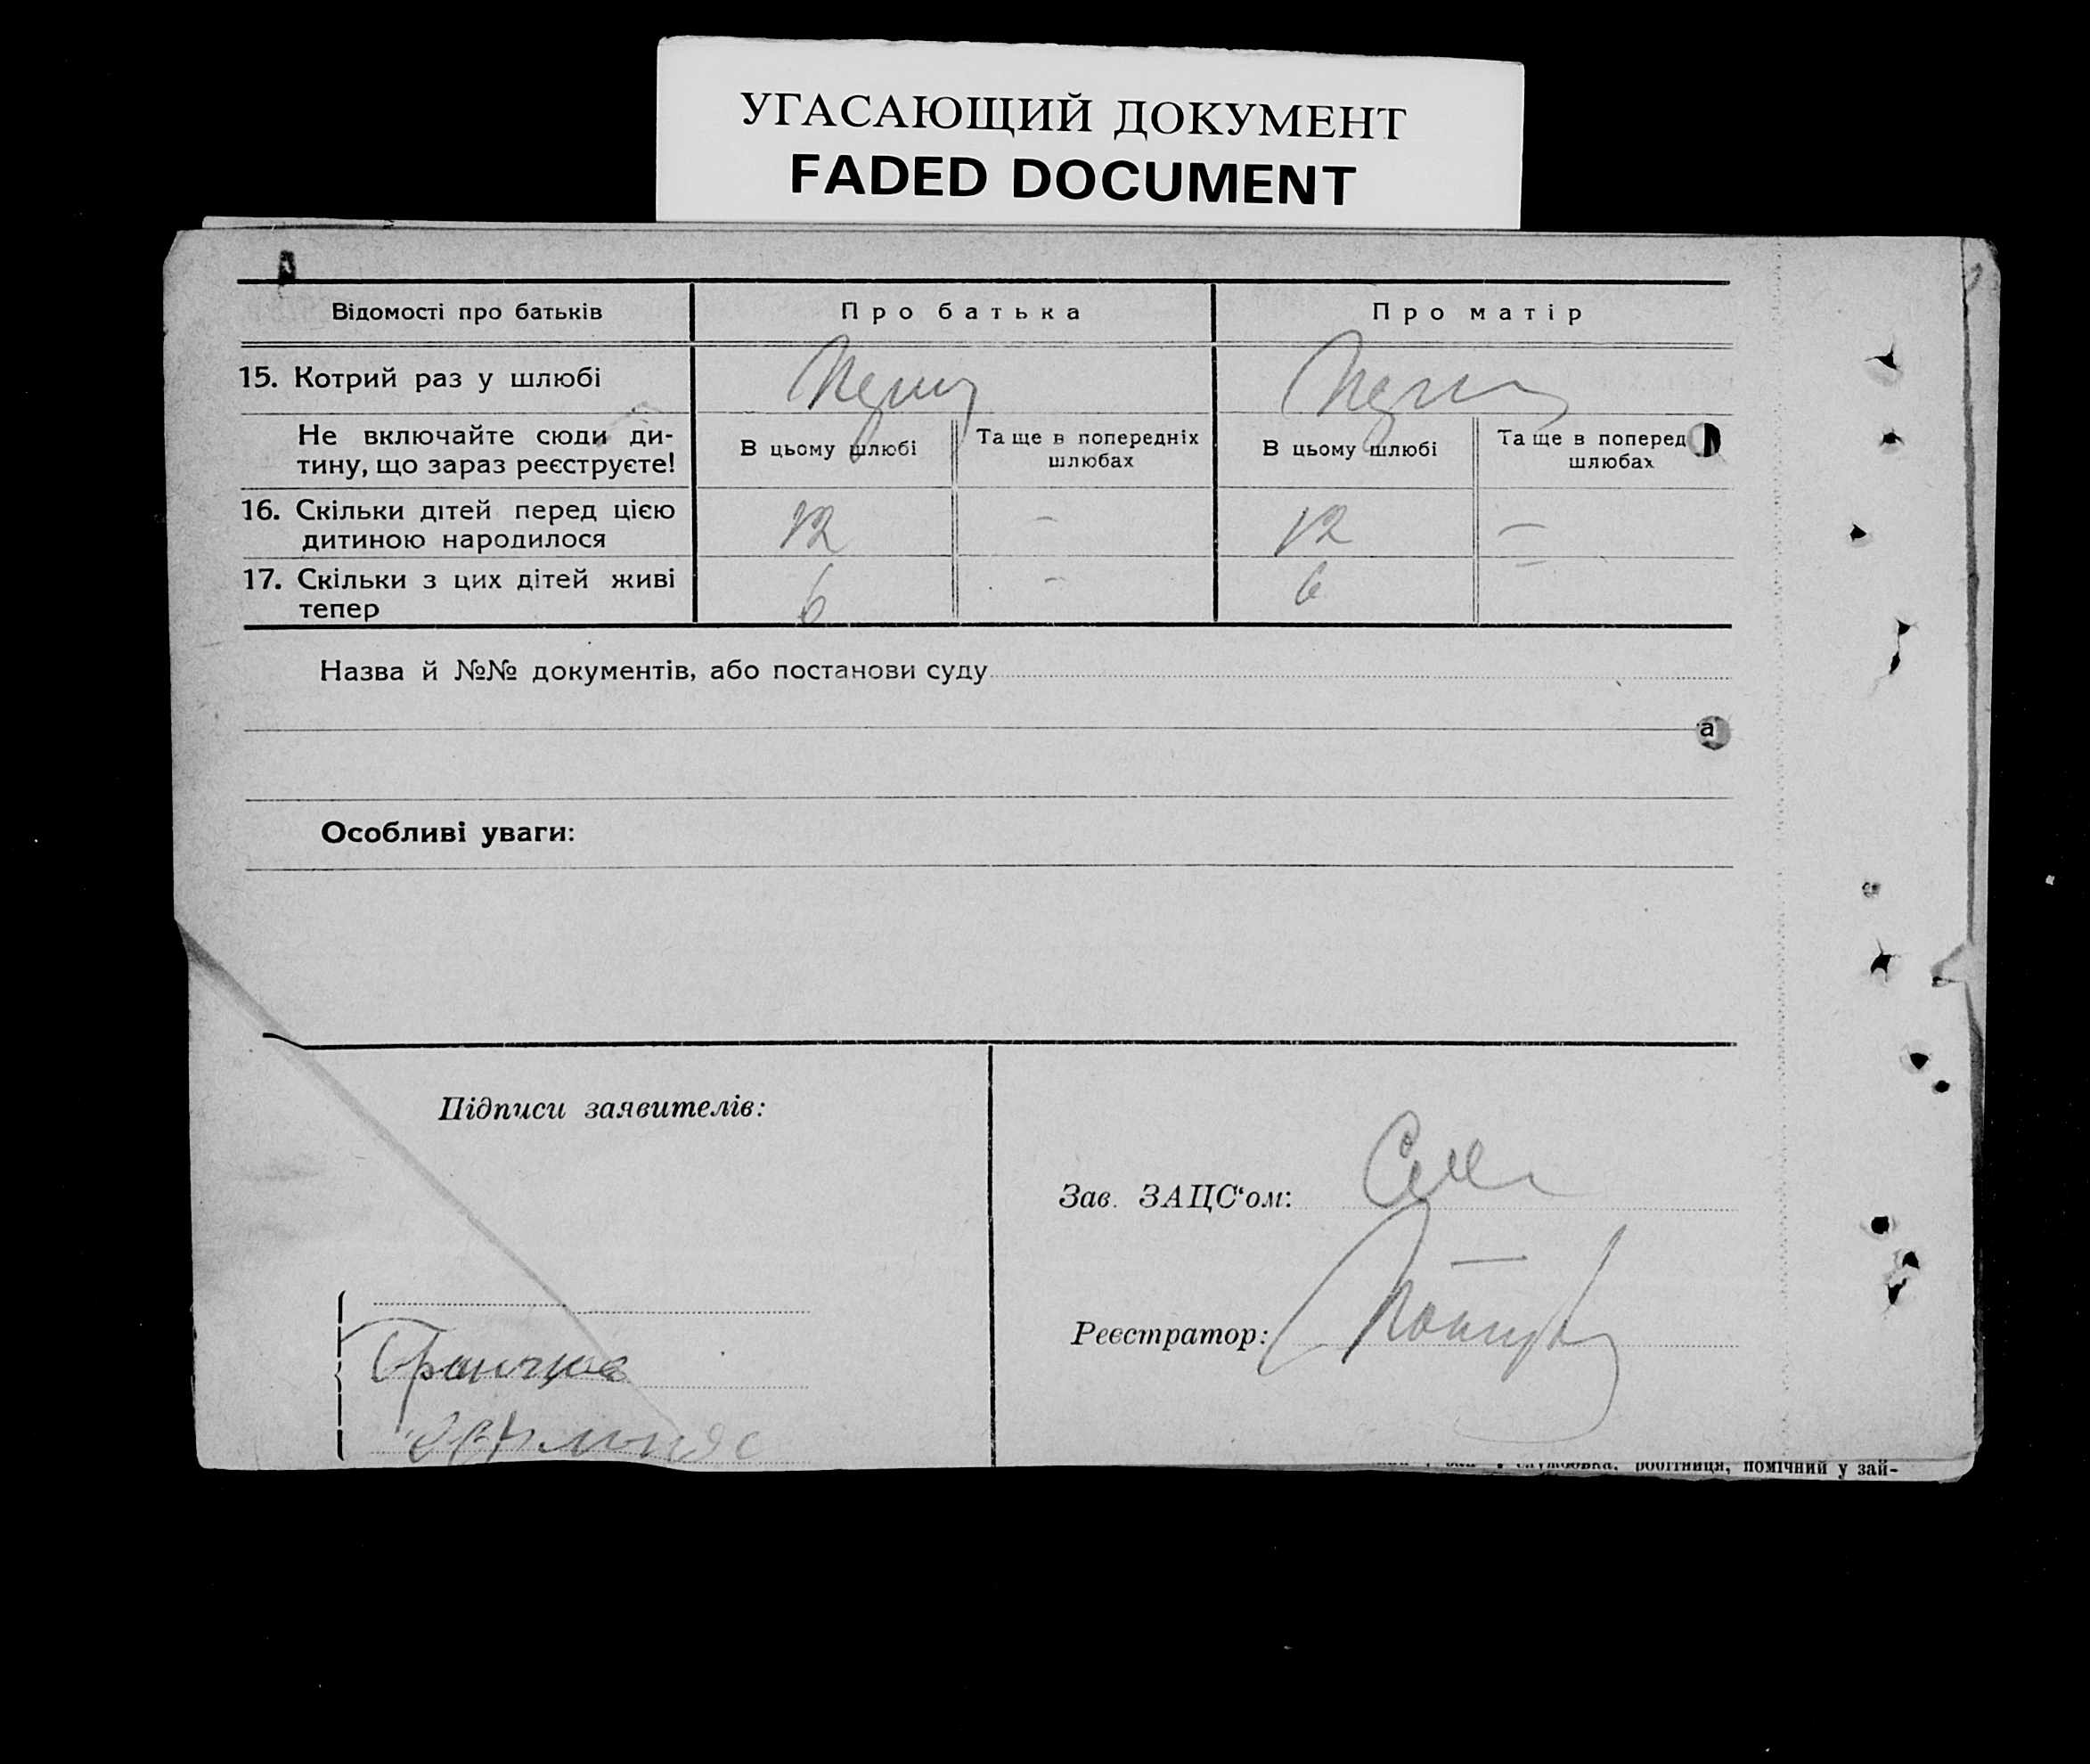 УГАСАЮЩИЙ ДОКУМЕНТ
FADED DOCUMENT
Відомості про батьків
Про батька
Про матір
15. Котрий раз у шлюбі
Не включайте сюди ди-
тину, що зараз реєструєте!
В цьому шлюбі
Та ще в попередніх
шлюбах
В цьому шлюбі
Та ще в поперед
шлюбах
16. Скільки дітей перед цією
дитиною народилося
12
–
12
–
17. Скільки з цих дітей живі
тепер
6
–
6
–
Назва й №№ документів, або постанови суду
а
Особливі уваги:
Підписи заявителів:
Зав. ЗАЦС‘ом:
Реєстратор:
робітниця, помічний у зай-